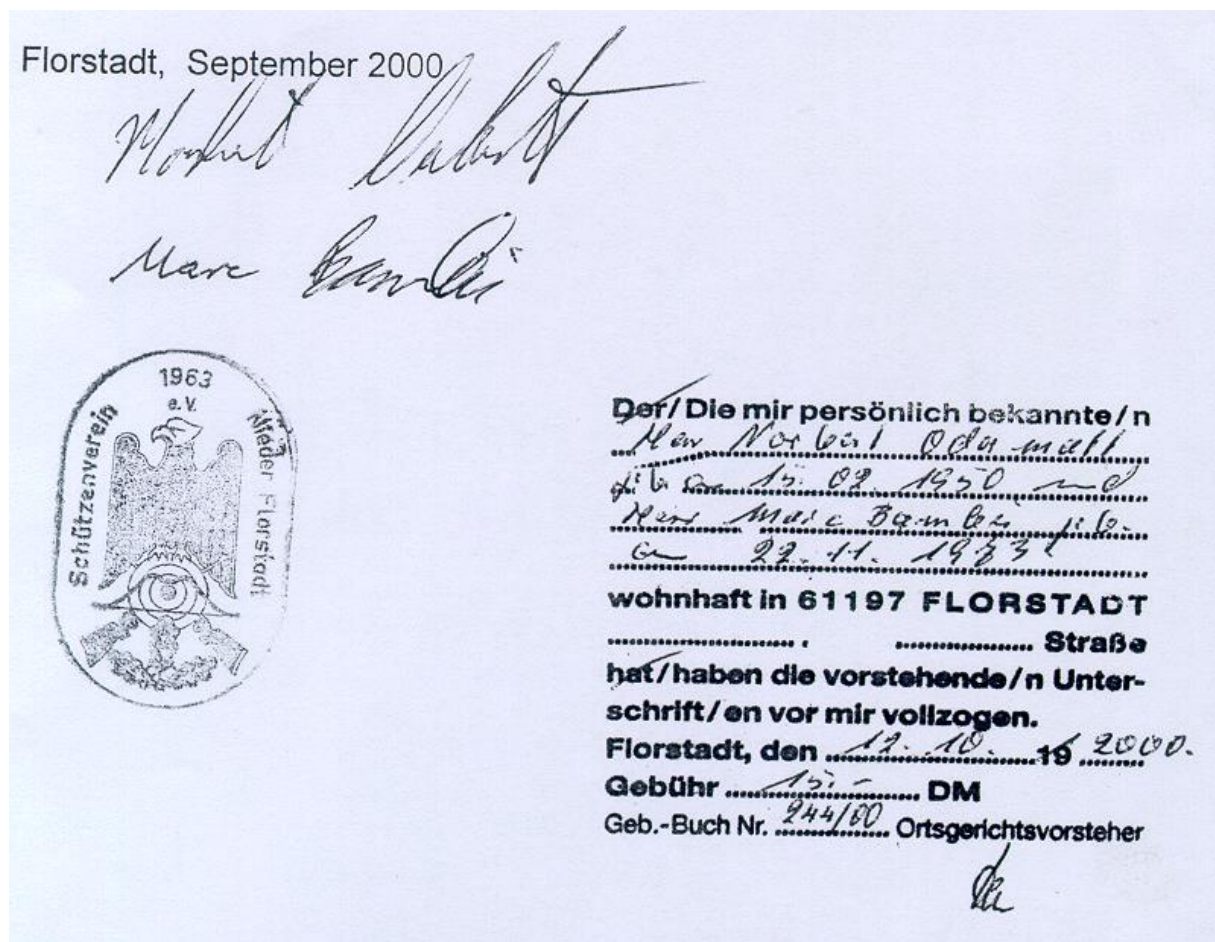 Florstadt, September 2000
Norbert
Marc
1963
e.V.
Schützenverein
Nieder Florstadt
Der/Die mir persönlich bekannte/n
Herr Norbert Odermatt
geb. am 15. 02. 1950 und
Herr Marc Bambei geb.
am 22. 11. 1973
wohnhaft in 61197 FLORSTADT
Straße
hat/haben die vorstehende/n Unter-
schrift/en vor mir vollzogen.
Florstadt, den 12. 10. 19 2000.
Gebühr 15,- DM
Geb.-Buch Nr. 244/00 Ortsgerichtsvorsteher